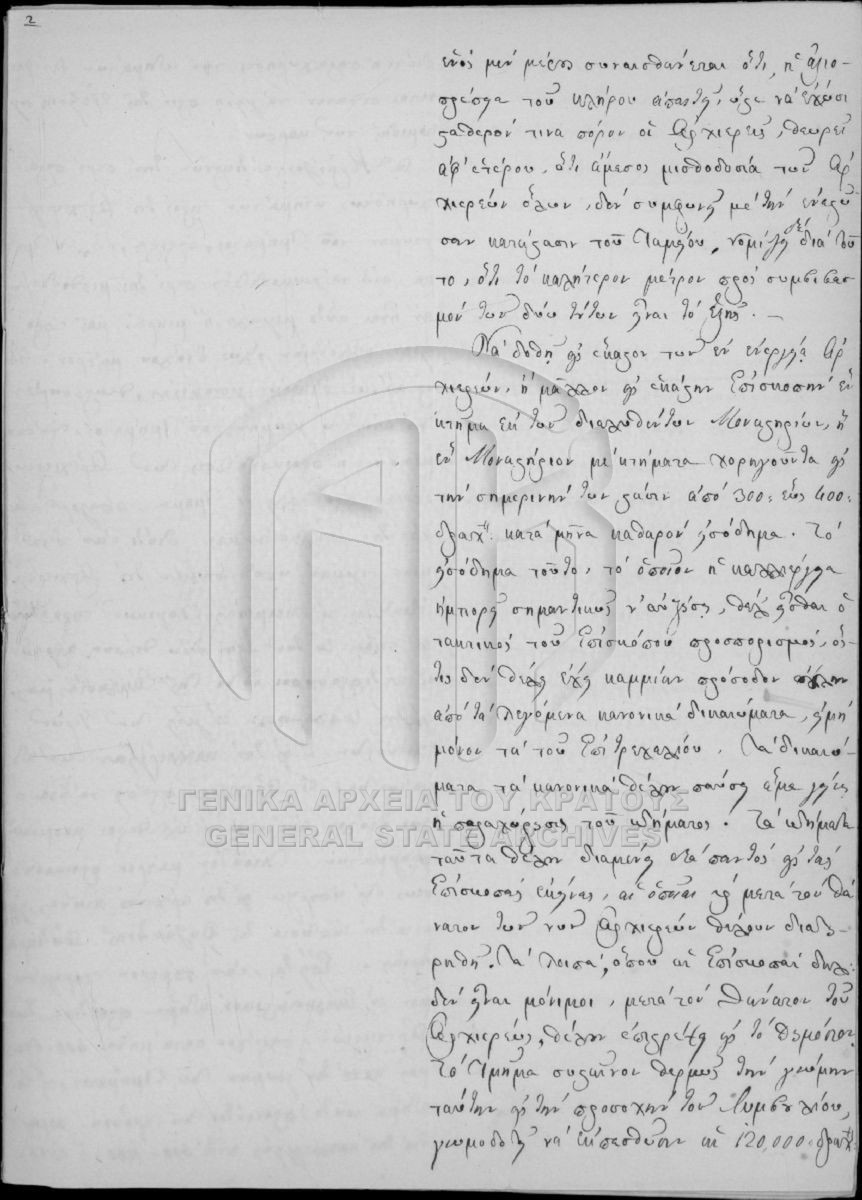 2
ἑνός μὲν μέρους συναισθάνεται ὅτι, ἡ ἀξιο-
πρέπεια τοῦ κλήρου ἀπαιτεῖ, ὥστε νὰ ἔχωσι
σταθερόν τινα πόρον οἱ Ἀρχιερεῖς, θεωρεῖ
ἀφ' ἑτέρου, ὅτι ἄμεσος μισθοδοσία τῶν Ἀρ-
χιερέων ὅλων, δὲν συμφωνεῖ μὲ τὴν ἐνεστῶ-
σαν κατάστασιν τοῦ Ταμείου, νομίζει δὲ διὰ τοῦ-
το, ὅτι τὸ καλήτερον μέτρον πρὸς συμβιβασ-
μὸν τῶν δύω τούτων εἶναι τὸ ἑξῆς. —
Νὰ δοθῇ εἰς ἕκαστον τῶν ἐν ἐνεργείᾳ Ἀρ-
χιερέων, ἢ μᾶλλον εἰς ἑκάστην Ἐπισκοπὴν ἓν
κτῆμα ἐκ τῶν διαλυθέντων Μοναστηρίων, ἢ
ἓν Μοναστήριον μὲ κτήματα χορηγοῦντα εἰς
τὴν σημερινήν των στάσιν ἀπὸ 300: ἕως 400:
δραχ: κατὰ μῆνα καθαρὸν εἰσόδημα. Τὸ
εἰσόδημα τοῦτο, τὸ ὁποῖον ἡ καλλιέργεια
ἠμπορεῖ σημαντικῶς ν' αὐξήσῃ, θέλει εἶσθαι ὁ
τακτικὸς τοῦ Ἐπισκόπου προσπορισμός, ὅσ-
τις δὲν θέλει ἔχει καμμίαν πρόσοδον
ἀπὸ τὰ λεγόμενα κανονικὰ δικαιώματα, εἰμὴ
μόνον τὰ τοῦ Ἐπιτραχηλίου. Τὰ δικαιώ-
ματα τὰ κανονικὰ θέλουν παύσει ἅμα γείνει
ἡ παραχώρησις τοῦ κτήματος. Τὰ κτήματα
ταῦτα θέλουν διαμένει διὰ παντὸς εἰς τὰς
Ἐπισκοπὰς ἐκείνας, αἱ ὁποῖαι καὶ μετὰ τὸν θά-
νατον τῶν νῦν Ἀρχιερέων θέλουν διατη-
ρηθῆ. Τὰ λοιπά, ὅπου αἱ Ἐπισκοπαὶ δηλ:
δὲν εἶναι μόνιμοι, μετὰ τὸν θάνατον τοῦ
Ἀρχιερέως, θέλουν ἐπιστρέψει εἰς τὸ δημόσιον.
Τὸ Τμῆμα συσταῖνον θερμῶς τὴν γνώμην
ταύτην εἰς τὴν προσοχὴν τοῦ Συμβουλίου,
γνωμοδοτεῖ νὰ αἱ 120,000: δραχ:
ΓΕΝΙΚΑ ΑΡΧΕΙΑ ΤΟΥ ΚΡΑΤΟΥΣ
GENERAL STATE ARCHIVES